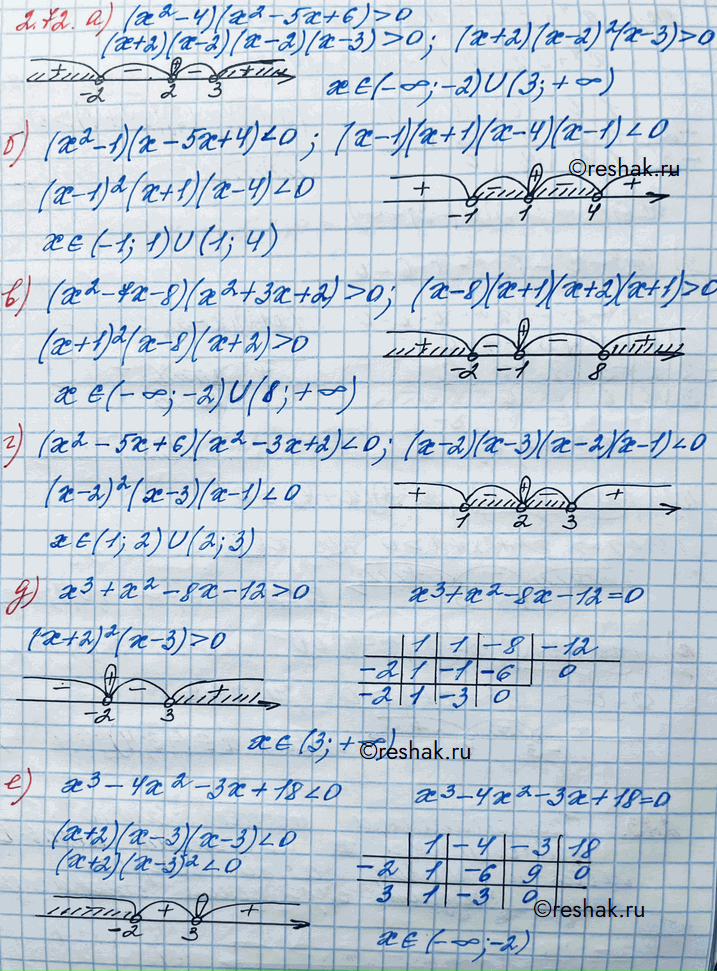 2.72. а) (x²-4)(x²-5x+6)>0
(x+2)(x-2)(x-2)(x-3)>0; (x+2)(x-2)²(x-3)>0
+ - + - +
-2 2 3 x∈(-∞;-2)∪(3;+∞)
б) (x²-1)(x-5x+4)<0; (x-1)(x+1)(x-4)(x-1)<0
©reshak.ru
(x-1)²(x+1)(x-4)<0
+ - + - +
-1 1 4
x∈(-1;1)∪(1;4)
в) (x²-7x-8)(x²+3x+2)>0; (x-8)(x+1)(x+2)(x+1)>0
(x+1)²(x-8)(x+2)>0
+ - + - +
-2 -1 8
x∈(-∞;-2)∪(8;+∞)
г) (x²-5x+6)(x²-3x+2)<0; (x-2)(x-3)(x-2)(x-1)<0
(x-2)²(x-3)(x-1)<0
+ - + - +
1 2 3
x∈(1;2)∪(2;3)
д) x³+x²-8x-12>0 x³+x²-8x-12=0
(x+2)²(x-3)>0
1 1 -8 -12
-2 1 -1 -6 0
-2 1 -3 0
- + - +
-2 3
x∈(3;+∞)
©reshak.ru
е) x³-4x²-3x+18<0 x³-4x²-3x+18=0
(x+2)(x-3)(x-3)<0
(x+2)(x-3)²<0
1 -4 -3 18
-2 1 -6 9 0
3 1 -3 0
- + - +
-2 3
©reshak.ru
x∈(-∞;-2)